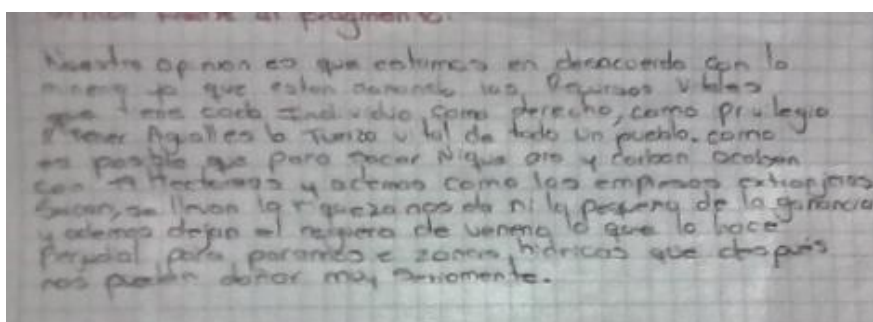 frente al fragmento.
Nuestra opinion es que estamos en desacuerdo con la
mineria ya que estan los Recursos vitales
que tiene cada Individuo, como derecho, como privilegio
tener Agua es lo vital de todo un pueblo. como
es posible que para sacar Niquel oro y carbon acaben
con Hectareas y ademas como las empresas extranjeras
Sacan, se llevan la riqueza nos da ni la pequeña de la ganancia
y ademas dejan el reguero de veneno lo que lo hace
para paramos e zonas hidricas que despues
nos pueden dañar muy seriamente.